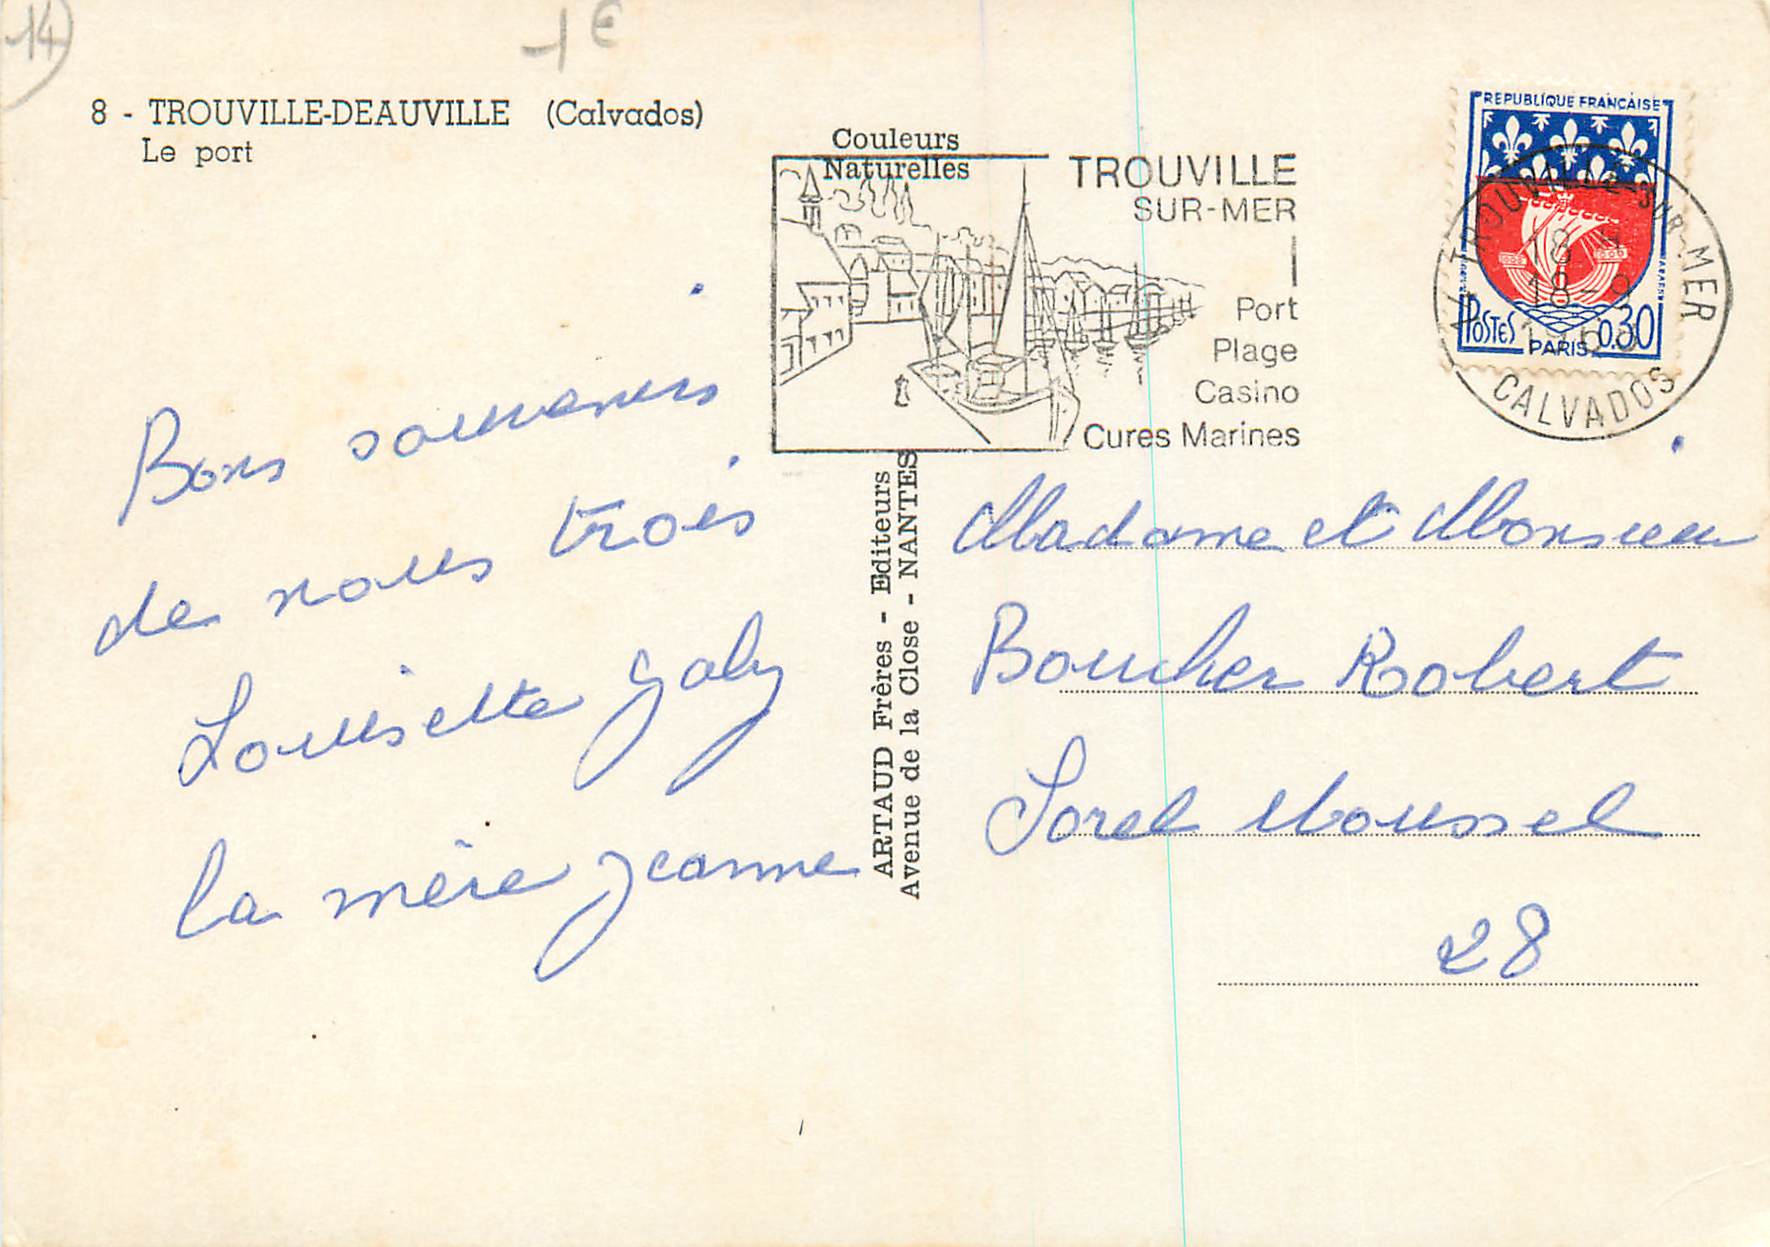 14
1 €
8 - TROUVILLE-DEAUVILLE (Calvados)
Le port
Couleurs
Naturelles
TROUVILLE
SUR-MER
Port
Plage
Casino
Cures Marines
REPUBLIQUE FRANÇAISE
POSTES PARIS 0,30
TROUVILLE SUR-MER
18 H
18-9
CALVADOS
Bons souvenirs
de nous trois
Louisette Gaby
la mère Jeanne
ARTAUD Frères - Editeurs
Avenue de la Close - NANTES
Madame et Monsieur
Boucher Robert
Sorel Moussel
28